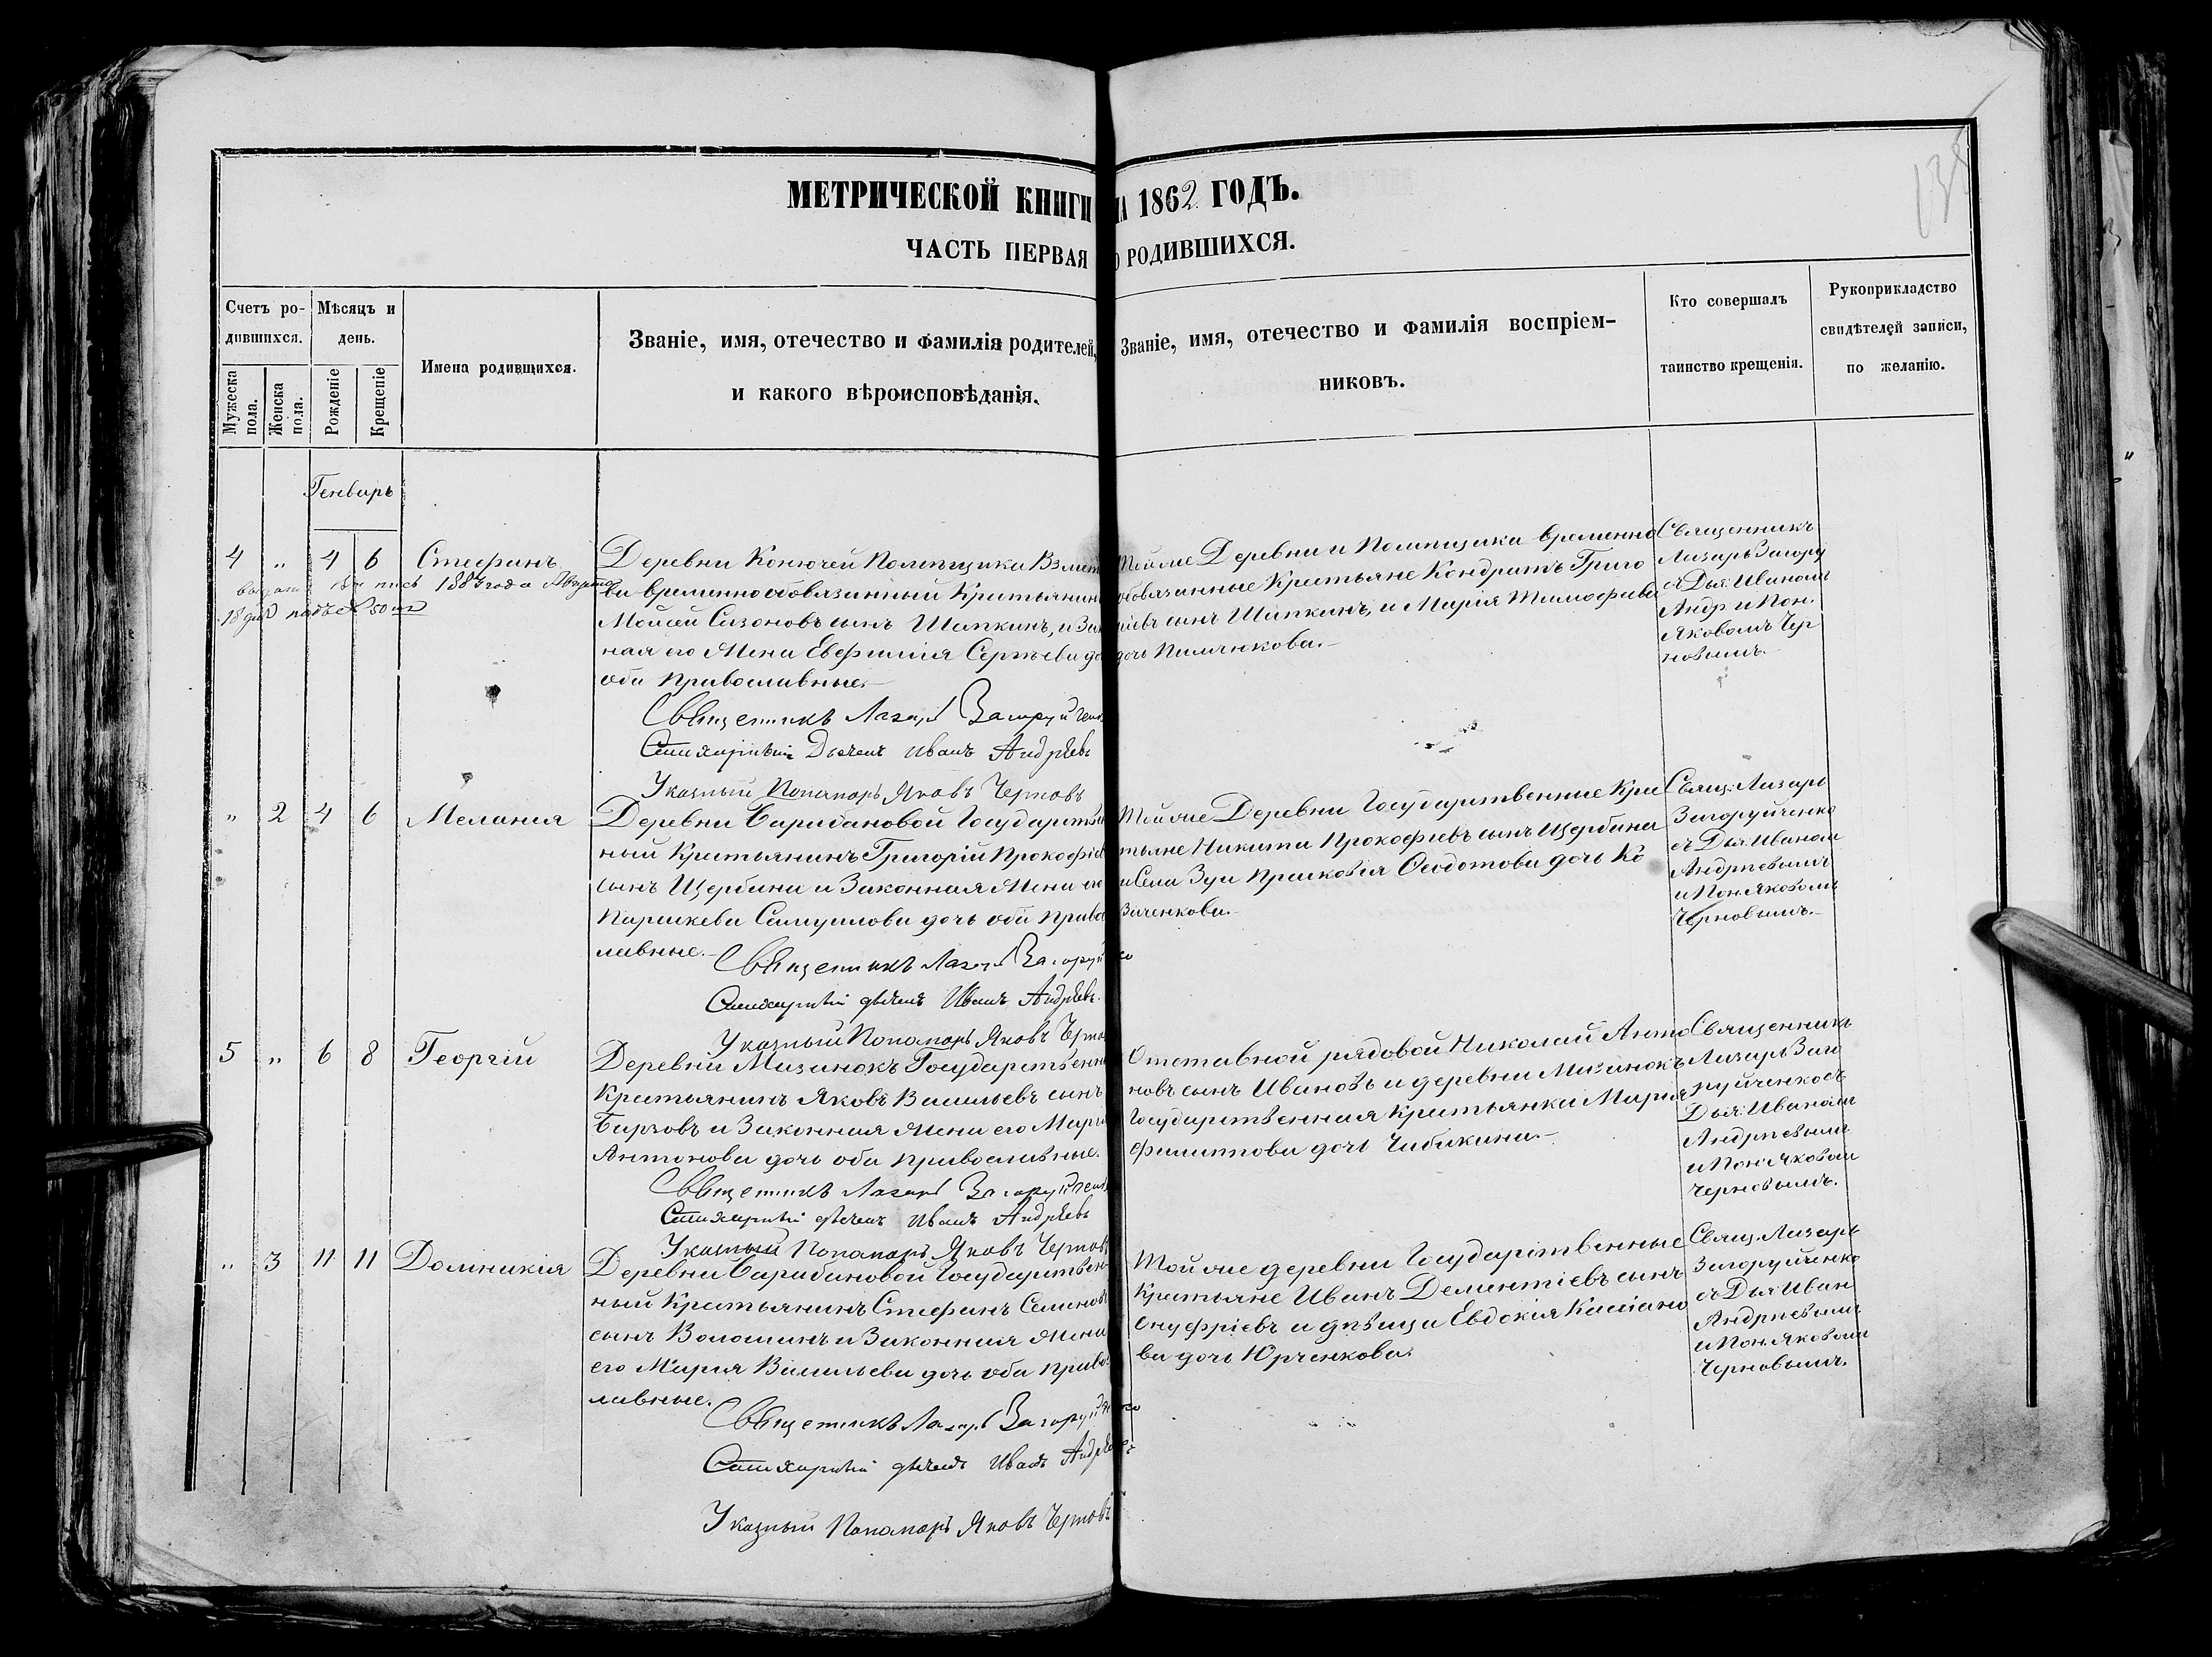 МЕТРИЧЕСКОЙ КНИГИ НА 1862 ГОДЪ.
ЧАСТЬ ПЕРВАЯ О РОДИВШИХСЯ.
Счетъ ро-
дившихся.
Мужеска
пола.
Женска
пола.
Мѣсяцъ и
день.
Рожденіе
Крещеніе
Имена родившихся.
Званіе, имя, отечество и фамилія родителей,
и какого вѣроисповѣданія.
Званіе, имя, отечество и фамилія воспріем-
никовъ.
Кто совершалъ
таинство крещенія.
Рукоприкладство
свидѣтелей записи,
по желанію.
Генварь
4 " 4 6 Стефанъ
1887 года
18 дня подъ № 50
Деревни Конючей Помѣщика
ва временнообязанный Крестьянинъ
Мойсей Сизоновъ сынъ Шапкинъ, и Закон
ная его Жена Евфимія Сергѣева дочь
оба православные.-
Священникъ Лазарь Загоруйченко
Стихарный Дьячекъ Иванъ Андрѣевъ
Указный Пономарь Яковъ Черновъ
Той же Деревни и Помѣщика временно
обязанные Крестьяне Кондратъ Григо
ріевъ сынъ Шапкинъ, и Марія Тимофѣева
дочь
Священникъ
Лазарь Загору
съ Дья: Иваномъ
Андр и Пон.
Яковомъ Чер
новымъ.-
" 2 4 6 Меланія
Деревни Барабановой Государствен
ный Крестьянинъ Григорій Прокофіевъ
сынъ Щербина и Законная Жена его
Параскева Самуилова дочь оба право
лавные.-
Священникъ Лазарь Загоруйченко
Стихарный дьячекъ Иванъ Андрѣевъ.
Указный Пономарь Яковъ Черновъ
Той же Деревни Государственные Кре
тьяне Никита Прокофіевъ сынъ Щербина
и Села Зуи Прасковія Ѳеодотова дочь Ко
заченкова.-
Свящ: Лазарь
Загоруйченко
съ Дья: Иваномъ
Андрѣевымъ
и Пон. Яковомъ
Черновымъ.-
5 " 6 8 Георгій
Деревни Мазанокъ Государственный
Крестьянинъ Яковъ Васильевъ сынъ
и Законная Жена его Марія
Антонова дочь оба православные.
Священникъ Лазарь Загоруйченко
Стихарный дьячекъ Иванъ Андрѣевъ
Указный Пономарь Яковъ Черновъ
Отставной рядовой Николай Анто
новъ сынъ Ивановъ и деревни Мазанокъ
Государственная крестьянка Марія
Филиппова дочь Чабикина.-
Священникъ
Лазарь Заго
руйченко съ
Дья: Иваномъ
Андрѣевымъ
и Пон: Яковомъ
Черновымъ.
" 3 11 11 Домникія
Деревни Барабановой Государствен-
ный Крестьянинъ Стефанъ Семеновъ
сынъ Волошинъ и Законная Жена
его Марія Васильева дочь оба право
лавные.
Священникъ Лазарь Загоруйченко
Стихарный дьячекъ Иванъ Андрѣевъ
Указный Пономарь Яковъ Черновъ
Той же деревни Государственные
Крестьяне Иванъ Дементіевъ сынъ
Онуфріевъ и дѣвица Евдокія Касіано
ва дочь Юрченкова.
Свящ. Лазарь
Загоруйченко
съ Дья Иван
Андрѣевымъ
и Пон. Яковомъ
Черновымъ.